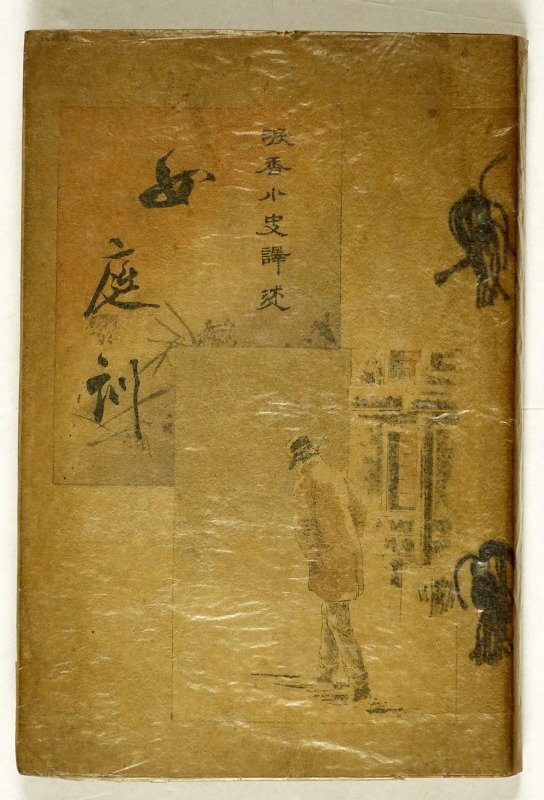 涙香小史譯述
女庭訓